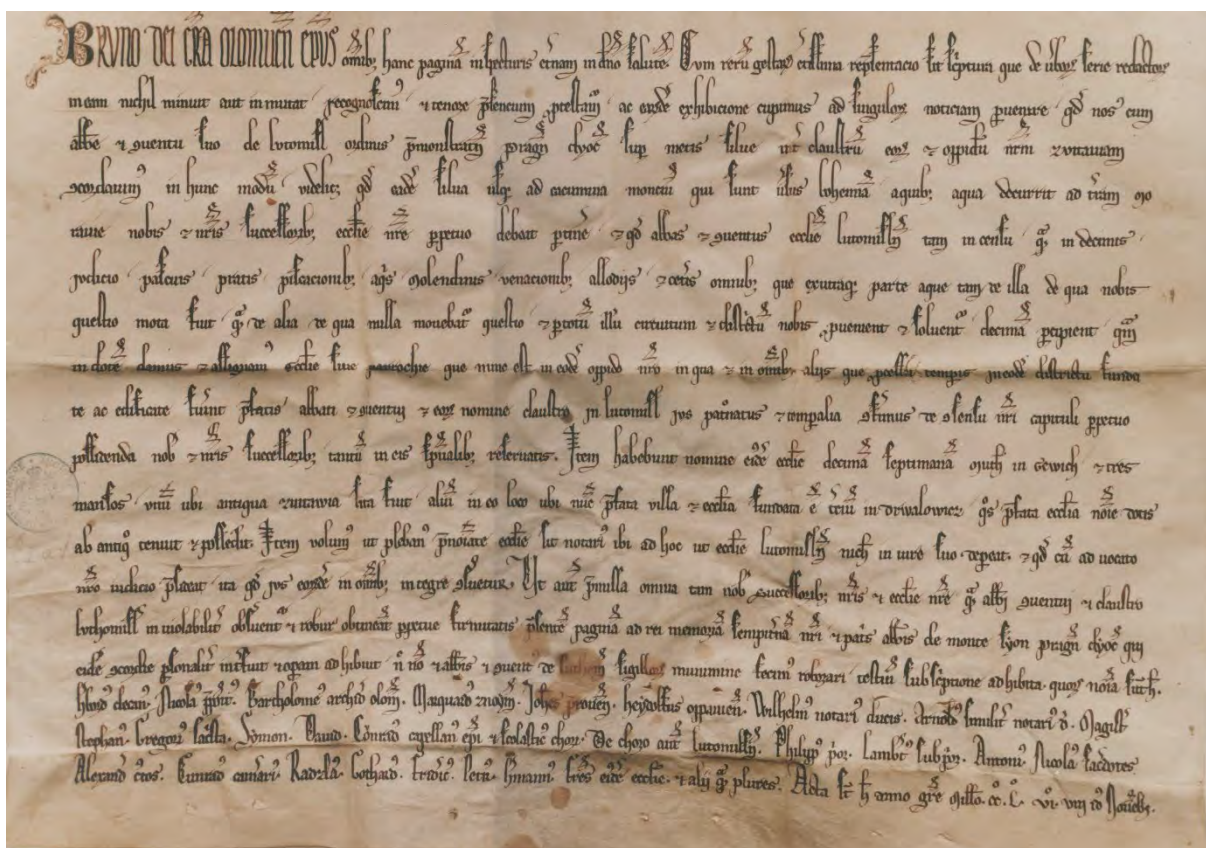 BRVNO DEI GRA OLOMUCEN EPUS omib; hanc paginā inspecturis et'nam in dn̄o salutē. Cvm rerū gestar' rep̄sentacio sit sc̄ptura que de uiuor' serie redactor'
meam nichil minuit aut inmutat recognoscim' tenore p̄sencium p̄testam' ac ei'dē exhibicione cupimus ad singulor' noticiam puenire qd' nos cum
abbe ⁊ 9uentu suo de lvtomisl ordinis p̄monstraten̄ pragen̄ dyoc̄ sup metis silue int' claustrū eor' ⁊ oppidū nr̄m zvitauiam
9cordauim' in hunc modū videlic; qd' eadē silua usq; ad cacumina monciū qui sunt u'sus bohemiā aquib; aqua decurrit ad t'ram mo
rauie nobis ⁊ nr̄is successorib; eccl'ie nr̄e ppetuo debeat ptine' ⁊ qd' abbas ⁊ 9uentus eccl'ie lutomislen̄ tam in censu q̄ in decimis
jvdicio pascuis pratis piscacionib; aq's molendinis venacionib; allodijs ⁊ cet'is omnib; que exutraq; parte aque tam de illa de qua nobis
questio mota fuit q̄ de alia de qua nulla mouebat' questio ⁊ p totū illū circuitum ⁊ districtū nobis puenient ⁊ soluent' decimā pcipient quā
in dotē damus ⁊ assignam' eccl'ie siue parrochie que nunc est in eodē oppido nr̄o in qua ⁊ in omib; alijs que pcessu tempis in eodē districtu funda
te ac edificate fu'int p̄fatis abbati ⁊ 9uentui ⁊ eor' nomine claustro in lvtomisl jvs pat'onatus ⁊ temporalia 9ferimus de 9sensu nr̄i capituli ppetuo
possidenda nob' ⁊ nr̄is successorib; tantū in eis sp̄ualib; reseruatis. Item habebunt nomine eiusdē eccl'ie decimā septimanā muth in Gewich ⁊ tres
mansos vnū ubi antiqua zuitawia sita fuit aliū in eo loco ubi nūc p̄fata villa ⁊ eccl'ia fundata ē t'ciū in drivalowicz q's p̄fata eccl'ia noīe dotis
ab antiq' tenuit ⁊ possedit. Item volum' ut pleban' p̄notate eccl'ie sit notari' ibi ad hoc ut eccl'ie lutomislen̄ nich' in iure suo depeat. ⁊ qd' cū aduocato
nr̄o iudicio p̄sideat ita qd' jvs eor'dē in omib; integre 9s'uetur. Vt aut' p̄missa omnia tam nob' successorib; nr̄is ⁊ eccl'ie nr̄e q̄ abb'i 9uentui ⁊ claustro
lvthomisl' inuiolabilit' obs'uent' ⁊ robur obtineāt ppetue firmitatis p̄sentē paginā ad rei memoriā sempit'nā nr̄i ⁊ pat'is abb'is de monte syon pragen̄ dyoc̄ qui
eidē 9cordie p'sonalit' int'fuit ⁊ opam adhibuit ⁊ abb'is ⁊ 9uent' de luthom' sigillor' munimine fecim' roborari testiū subsc̄ptione adhibita. quor' noīa sūt h'.
decan'. Nicola' p̄posit'. Bartholome' archid' olom̄. Marquard' znoym̄. Joh'es preroūen̄. heydolfus oppauien̄. Wilhelm' notari' ducis. Arnold' similit' notari' d'. Magist'
Stephan'. Gregori' sac'ista. Symon. Dauid. Conrad' capellan' ep̄i ⁊ scolastic' chori. De choro aut' lutomislen̄. Philipp' p'or. Lambt' supp'or. Antoni'. Nicola' sac'dotes.
Alexand' c'tos. Cunrad' cam'ari'. Radzla'. Gothard'. fridic'. Petr'. h'mann' fr̄es eiusdē eccl'ie. ⁊ alij q̄ plures. Acta sūt h' anno gr̄e Mill'o. cc°. L° VI°. VIII id' Nouēb'.